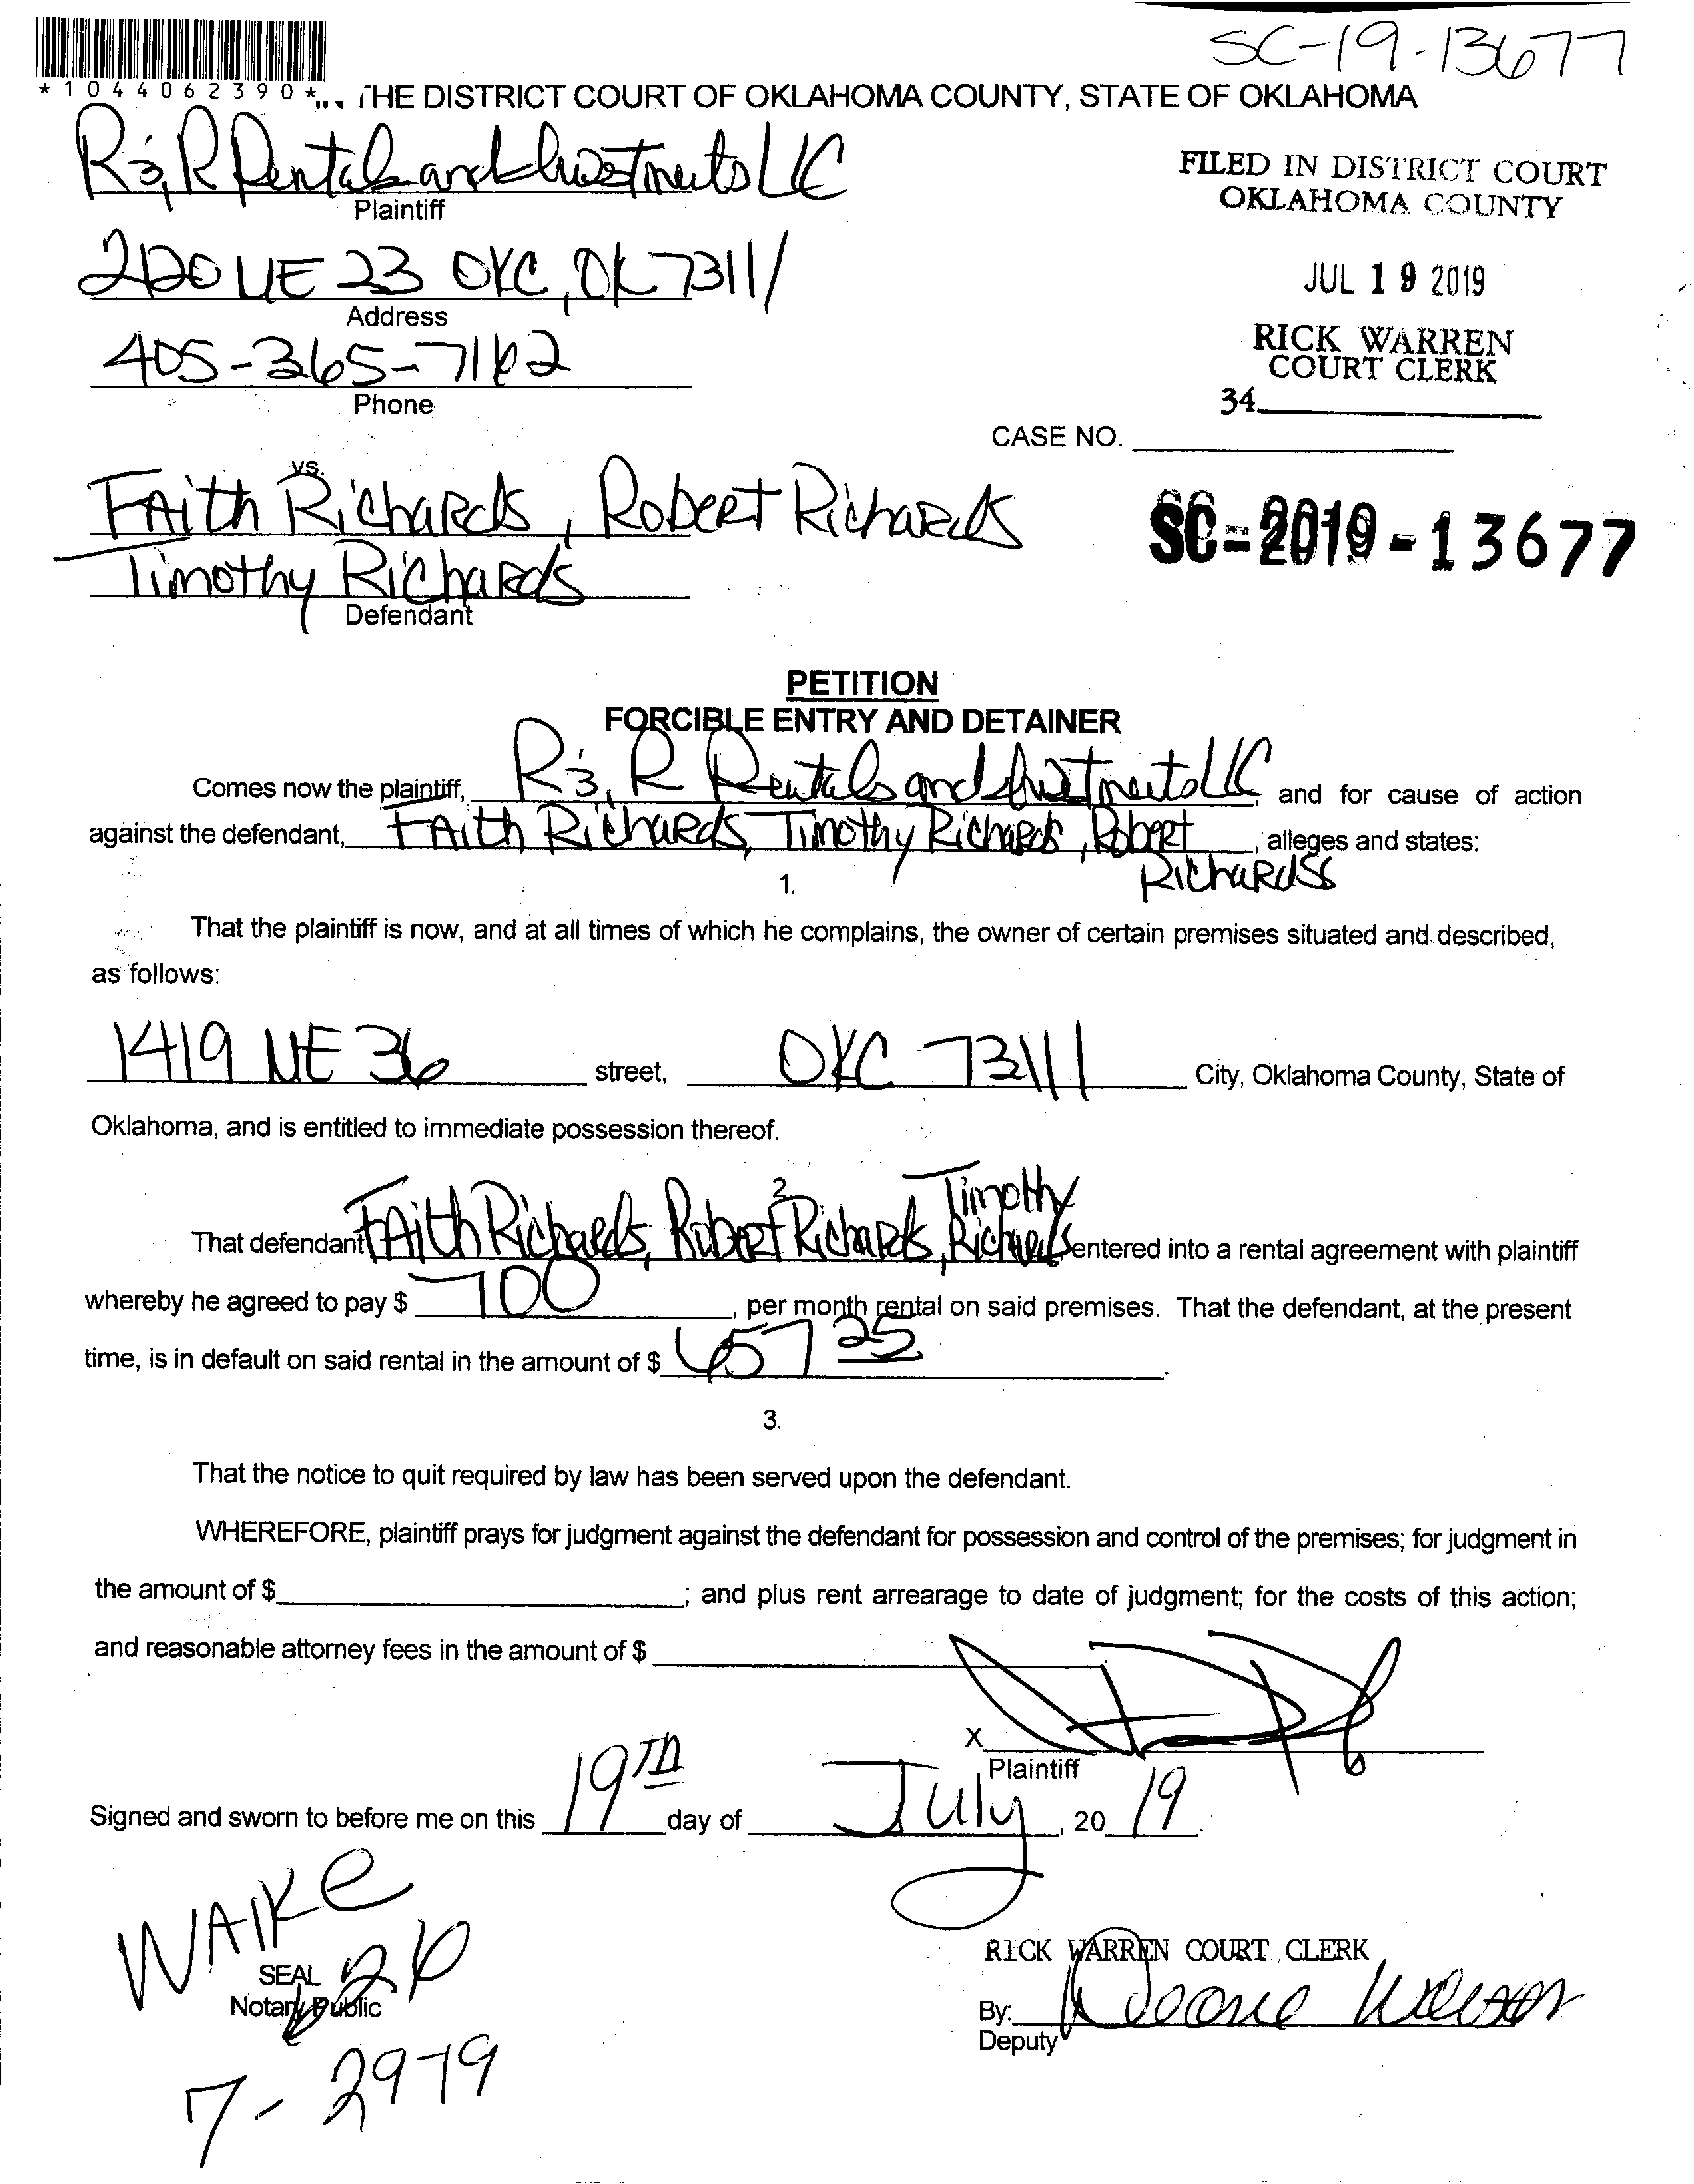 SC-19-13677
*1044062390*
THE DISTRICT COURT OF OKLAHOMA COUNTY, STATE OF OKLAHOMA
R3,R Rentals and Investments LLC
Plaintiff
FILED IN DISTRICT COURT
OKLAHOMA COUNTY
2120 NE 23 OKC, OK 73111
Address
JUL 19 2019
405-365-7162
Phone
RICK WARREN
COURT CLERK
34
CASE NO.
vs.
Faith Richards, Robert Richards
Timothy Richards
Defendant
SC-2019-13677
PETITION
FORCIBLE ENTRY AND DETAINER
Comes now the plaintiff, R3,R Rentals and Investments LLC, and for cause of action
against the defendant, Faith Richards, Timothy Richards, Robert, alleges and states:
Richardss
1.
That the plaintiff is now, and at all times of which he complains, the owner of certain premises situated and described,
as follows:
1419 NE 36 street, OKC 73111 City, Oklahoma County, State of
Oklahoma, and is entitled to immediate possession thereof.
2.
That defendant Faith Richards, Robert Richards, Timothy Richards entered into a rental agreement with plaintiff
whereby he agreed to pay $ 700, per month rental on said premises. That the defendant, at the present
time, is in default on said rental in the amount of $ 657 25.
3.
That the notice to quit required by law has been served upon the defendant.
WHEREFORE, plaintiff prays for judgment against the defendant for possession and control of the premises; for judgment in
the amount of $ ; and plus rent arrearage to date of judgment; for the costs of this action;
and reasonable attorney fees in the amount of $
X
Plaintiff
Signed and sworn to before me on this 19th day of July, 20 19.
SEAL
Notary Public
RICK WARREN COURT CLERK
By:
Deputy
7-29-19